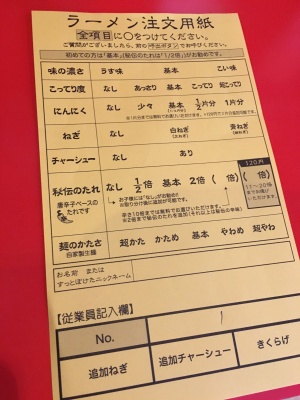 ラーメン注文用紙
全項目に○をつけてください。
ご質問がございましたら、前の呼出ボタンでお呼びください。
初めての方は「基本」「秘伝のたれは「1/2倍」がお勧めです。
味の濃さ うす味 基本 こい味
こってり度 なし あっさり 基本 こってり 超こってり
にんにく なし 少々 基本 1/2片分 1片分
ねぎ なし 白ねぎ 青ねぎ
チャーシュー なし あり
秘伝のたれ なし 1/2倍 基本 2倍 ( 倍)
唐辛子ベースの
たれです
120円
( 倍)
11〜20倍
までお選び
いただけます
お子様には「なし」がお勧め!
お取り分け後に追加が可能です。
辛さ10倍までは無料でお選びいただけます。
麺のかたさ 超かた かため 基本 やわめ 超やわ
自家製生麺
お名前 または
すっとぼけたニックネーム
【従業員記入欄】
No. 1
追加ねぎ 追加チャーシュー きくらげ